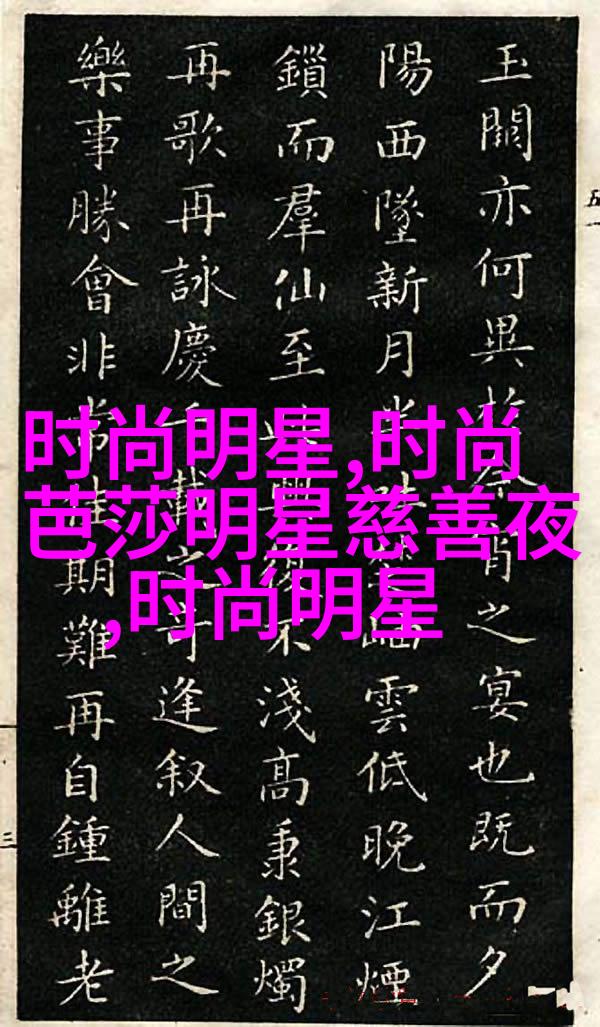 玉闕亦何異於今宵之宴也既而夕
陽西墜新月雲低晚江煙
鎖而羣仙至不淺高秉銀燭
再歌再詠慶千載之奇逢叙人間之
樂事勝會非常佳期難再自鍾離老
时尚明星,时尚
芭莎明星慈善夜
,时尚明星
五一
三